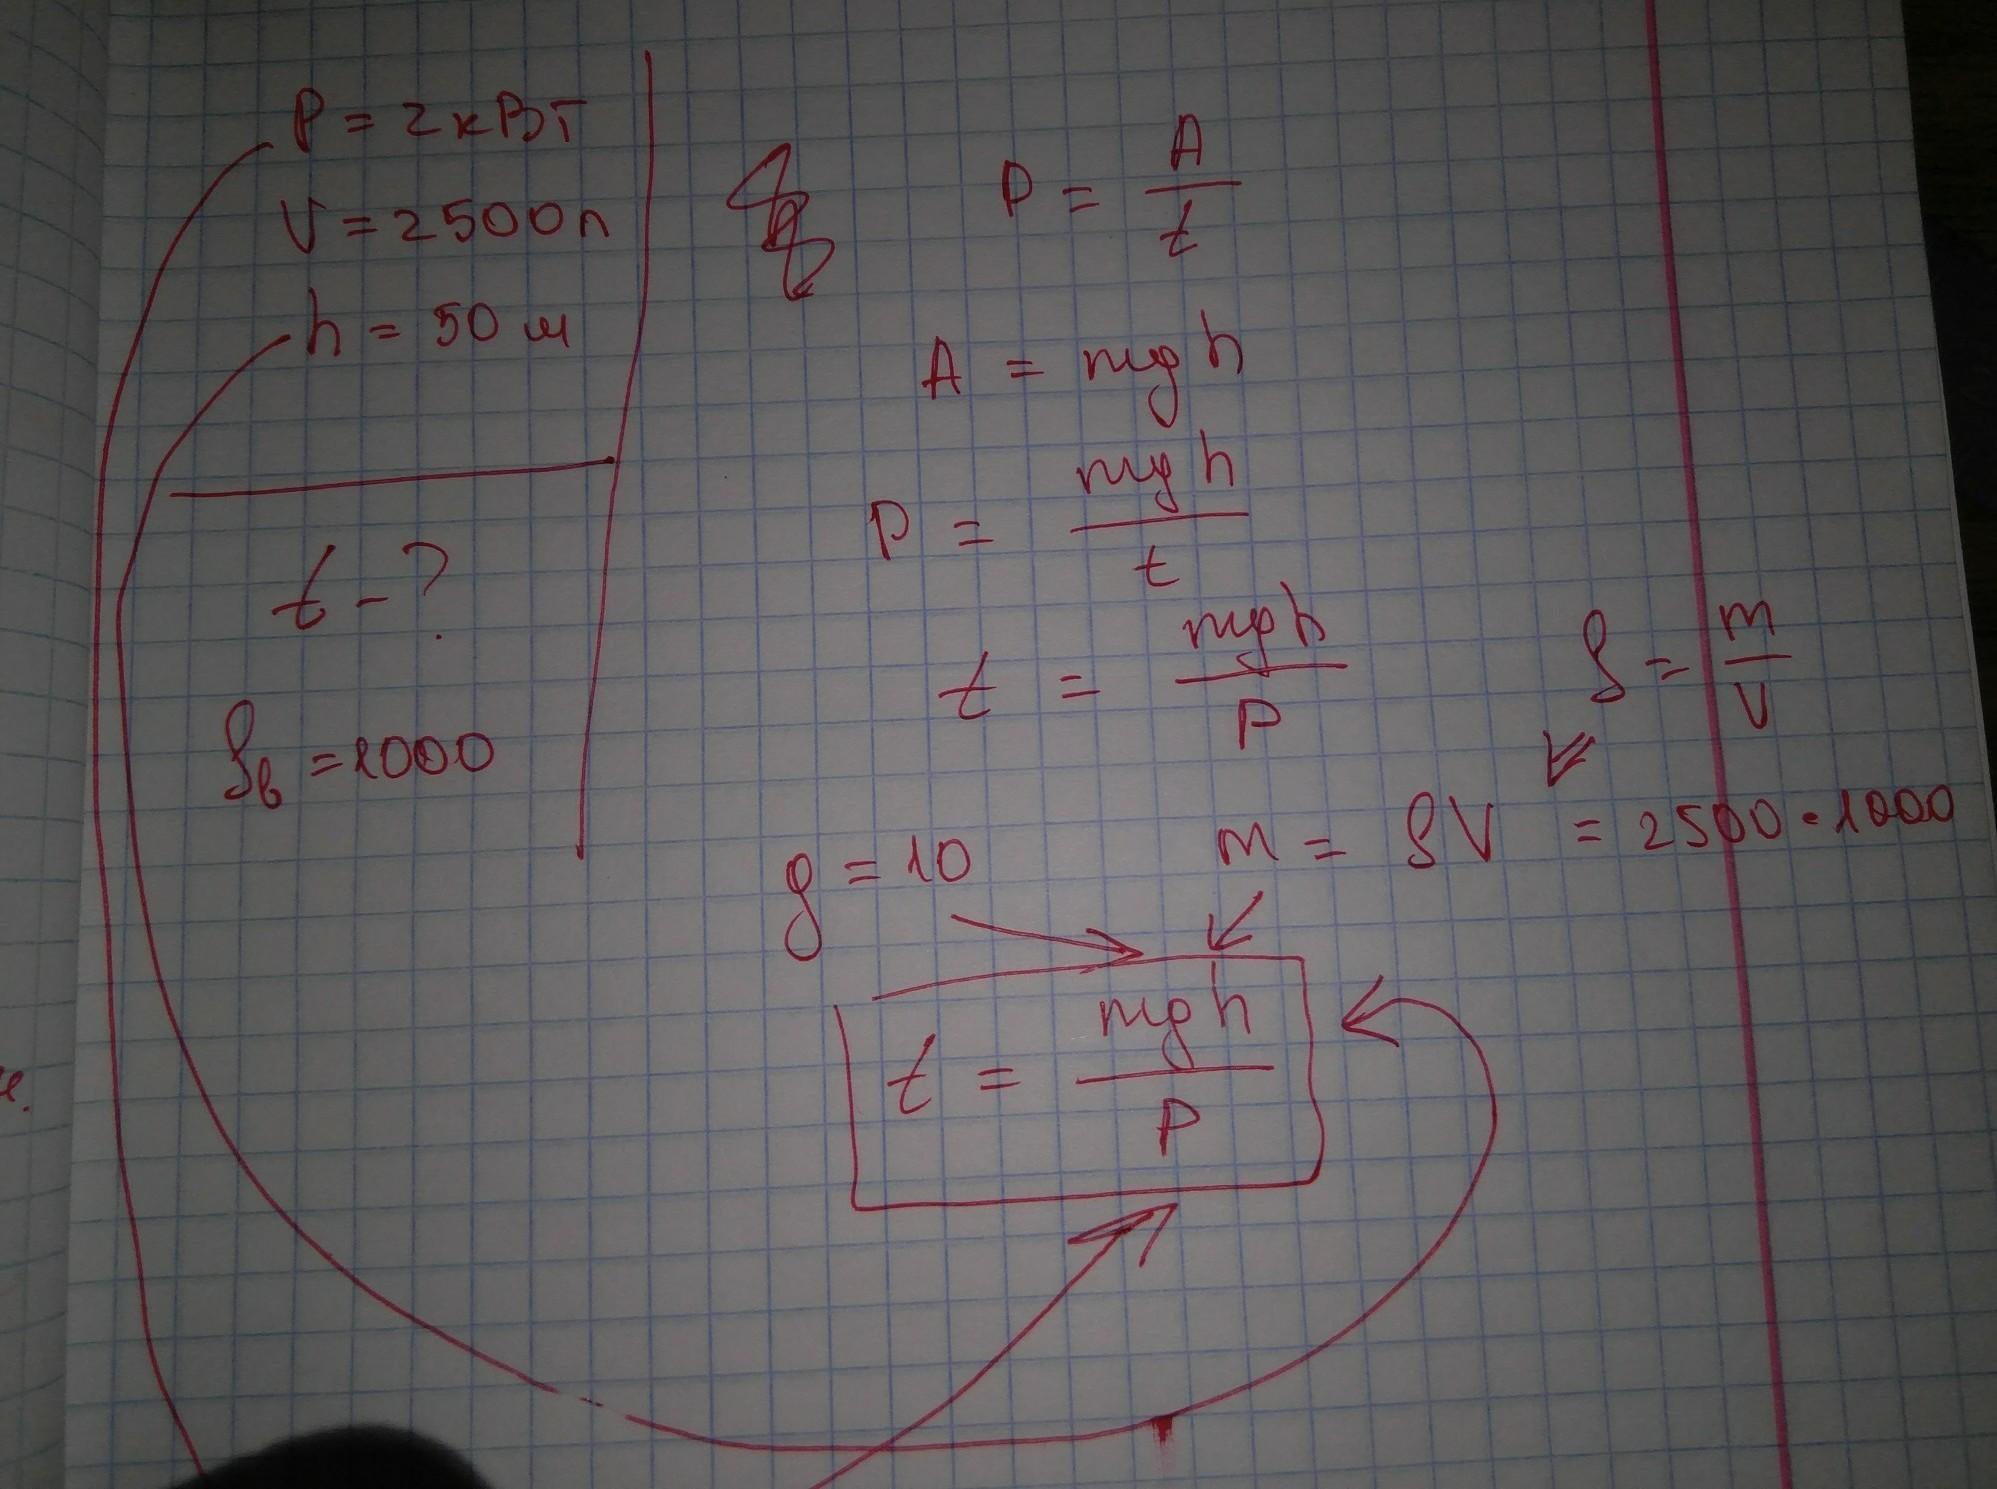 P = 2кВт
V = 2500л
h = 50 м
t - ?
ρв = 1000
P = A/t
A = mgh
P = mgh/t
t = mgh/P
ρ = m/V
m = ρV = 2500 · 1000
g = 10
t = mgh/P